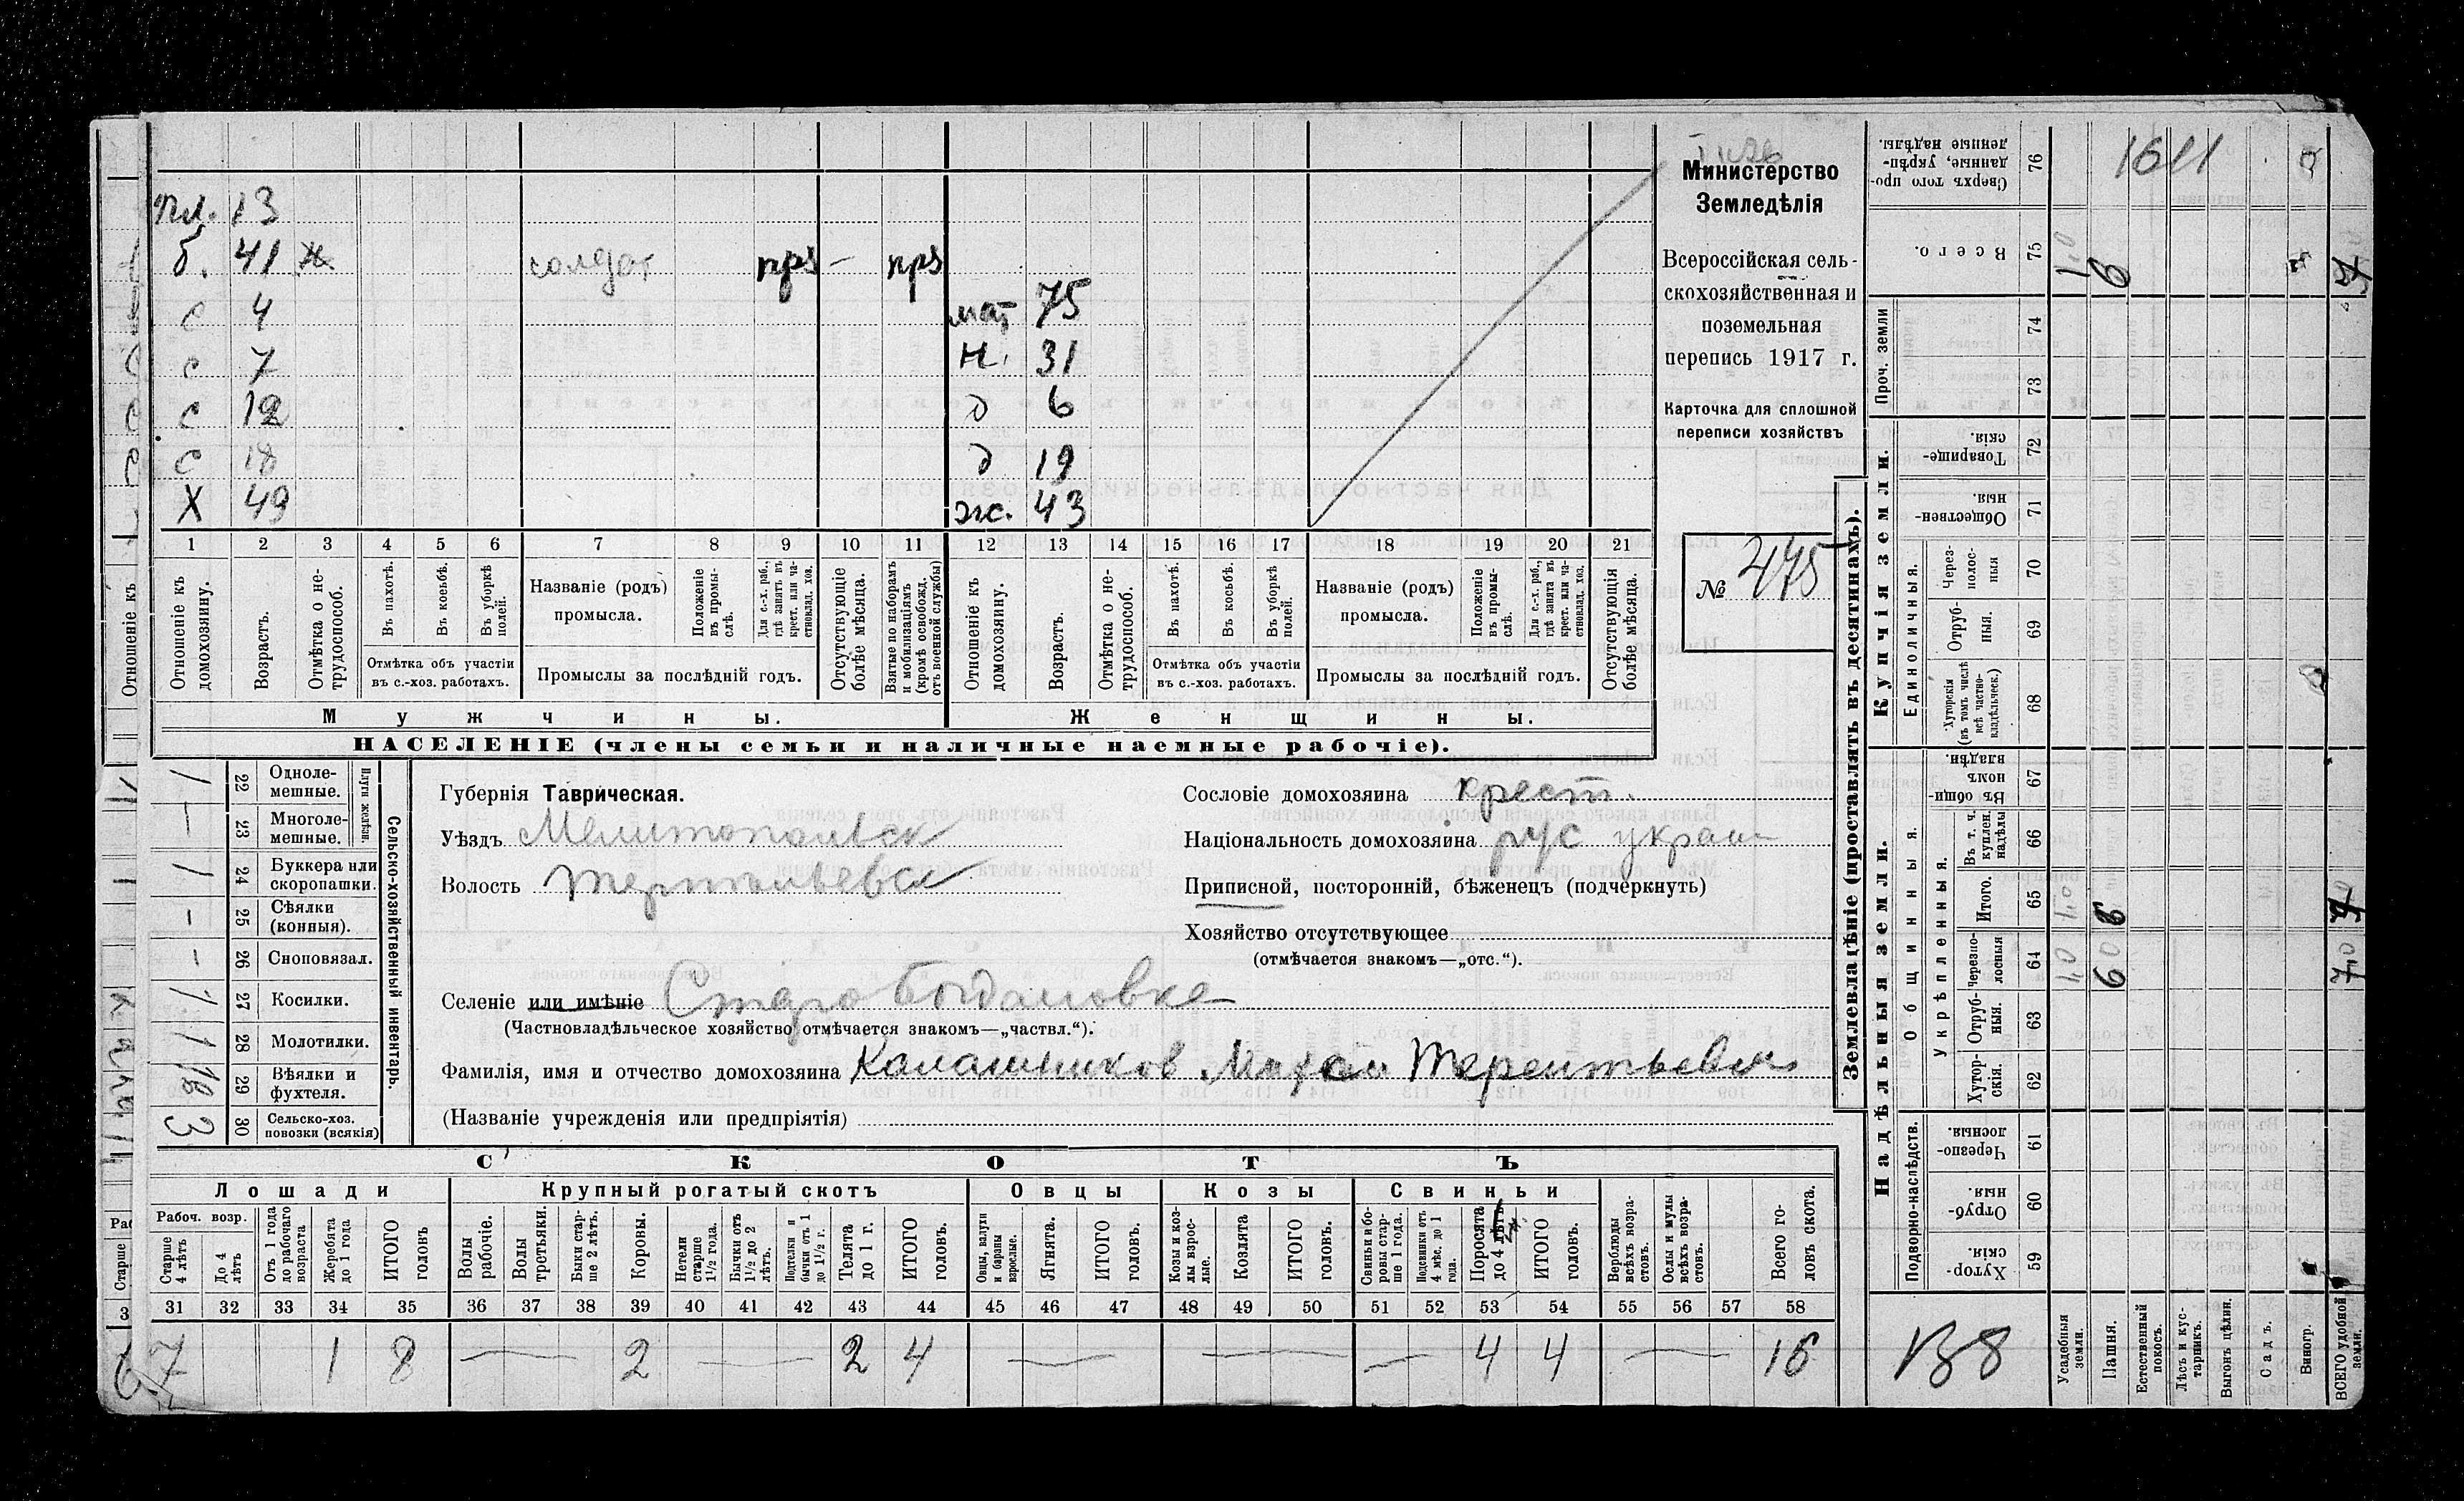 Министерство
Земледѣлія
Всероссійская сель-
скохозяйственная и
поземельная
перепись 1917 г.
Карточка для сплошной
переписи хозяйствъ
№ 475
пл. 13
б. 41 солдат
с 4 мат 75
с 7 н. 31
с 12 д 6
с 18 д 19
Х 49 ж. 43
1 2 3 4 5 6 7 8 9 10 11 12 13 14 15 16 17 18 19 20 21
Отношеніе къ домохозяину.
Возрастъ.
Отмѣтка о не-трудоспособ.
Въ пахотѣ.
Въ косьбѣ.
Въ уборкѣ полей.
Отмѣтка объ участіи
въ с.-хоз. работахъ.
Названіе (родъ)
промысла.
Положеніе въ промы-слѣ.
Для с.-х. раб., гдѣ занятъ въ крест. или ча-стновлад. хоз.
Промыслы за послѣдній годъ.
Отсутствующіе болѣе мѣсяца.
Взятые по наборамъ и мобилизаціямъ (кромѣ освобожд. отъ военной службы)
Отношеніе къ домохозяину.
Возрастъ.
Отмѣтка о не-трудоспособ.
Въ пахотѣ.
Въ косьбѣ.
Въ уборкѣ полей.
Отмѣтка объ участіи
въ с.-хоз. работахъ.
Названіе (родъ)
промысла.
Положеніе въ промы-слѣ.
Для с.-х. раб., гдѣ занята въ крест. или ча-стновлад. хоз.
Промыслы за послѣдній годъ.
Отсутствующія болѣе мѣсяца.
Мужчины. Женщины.
НАСЕЛЕНІЕ (члены семьи и наличные наемные рабочіе).
Сельско-хозяйственный инвентарь.
Плуги желѣзн.
22 Одноле-мешные. 1
23 Многоле-мешные. —
24 Буккера или скоропашки. 1
25 Сѣялки (конныя). -
26 Сноповязал. -
27 Косилки. 1
28 Молотилки. 1
29 Вѣялки и фухтеля.
30 Сельско-хоз. повозки (всякія) 3
Губернія Таврическая.
Уѣздъ Мелитопольск
Волость
Селеніе или имѣніе Старо Богдановка
(Частновладѣльческое хозяйство отмѣчается знакомъ—„частвл.“).
Фамилія, имя и отчество домохозяина Калашников Терентьевич
(Названіе учрежденія или предпріятія)
Сословіе домохозяина крест.
Національность домохозяина рус украин
Приписной, посторонній, бѣженецъ (подчеркнуть)
Хозяйство отсутствующее
(отмѣчается знакомъ—„отс.“).
СКОТЪ
Лошади
Крупный рогатый скотъ
Овцы
Козы
Свиньи
Рабоч. возр.
Старше 4 лѣтъ
До 4 лѣтъ
Отъ 1 года до рабочаго возраста
Жеребята до 1 года
ИТОГО головъ
Волы рабочіе.
Волы третьяки.
Быки стар-ше 2 лѣтъ.
Коровы.
Нетели старше 1½ года.
Бычки отъ 1½ до 2 лѣтъ.
Подтелки и бычки отъ 1 до 1½ г.
Телята до 1 г.
ИТОГО головъ.
Овцы, валухи и бараны взрослые.
Ягнята.
ИТОГО головъ.
Козы и коз-лы взрос-лые.
Козлята
ИТОГО головъ.
Свиньи и бо-ровы стар-ше 1 года.
Подсвинки отъ 4 мѣс. до 1 года.
Поросята до 4 лѣтъ
ИТОГО головъ.
Верблюды всѣхъ возра-стовъ.
Ослы и мулы всѣхъ возра-стовъ.
Всего го-ловъ скота.
31 32 33 34 35 36 37 38 39 40 41 42 43 44 45 46 47 48 49 50 51 52 53 54 55 56 57 58
7 1 8 — 2 — 2 4 — — — 4 4 — 16
Землевладѣніе (проставлять въ десятинахъ).
Купчія земли.
Надѣльныя земли.
76 Сверхъ того про-данные, укрѣп-ленные надѣлы. 1611
75 Всего. 1,0 6
Проч. земли
74
73
72 Товарище-скія.
71 Обществен-ныя.
Единоличныя.
70 Через-полос-ныя
69 Отруб-ныя.
68 Хуторскія (въ томъ числѣ всѣ частно-владѣльческ.)
Общинныя.
67 Въ общин-номъ владѣн.
Укрѣпленныя.
66 Въ т. ч. куплен. надѣлы
65 Итого. 1,0
64 Черезпо-лосныя 1,0 6,0 7,0
63 Отруб-ныя.
62 Хутор-скія.
Подворно-наслѣдств.
61 Черезпо-лосныя.
60 Отруб-ныя.
59 Хутор-скія.
Усадебныя земли.
Пашня.
Естественный покосъ.
Лѣсъ и кус-тарникъ.
Выгонъ цѣлин.
Садъ.
Виногр.
ВСЕГО удобной земли.